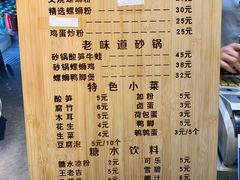 精选螺蛳粉 30元
鸡蛋炒粉 25元
老味道砂锅
砂锅酸笋牛蛙 45元
砂锅螺蛳鸡 38元
螺蛳鸭脚煲 32元
特色小菜
酸笋 5元 加粉 5元
腐竹 5元 卤蛋 3元
木耳 5元 荷包蛋 3元
花生 5元 鸭脚 5元
生菜 5元 鹌鹑蛋 3元/5个
豆腐泡 5元/10个
糖水饮料
糖水凉粉 2元 可乐 5元
王老吉 5元 雪碧 5元